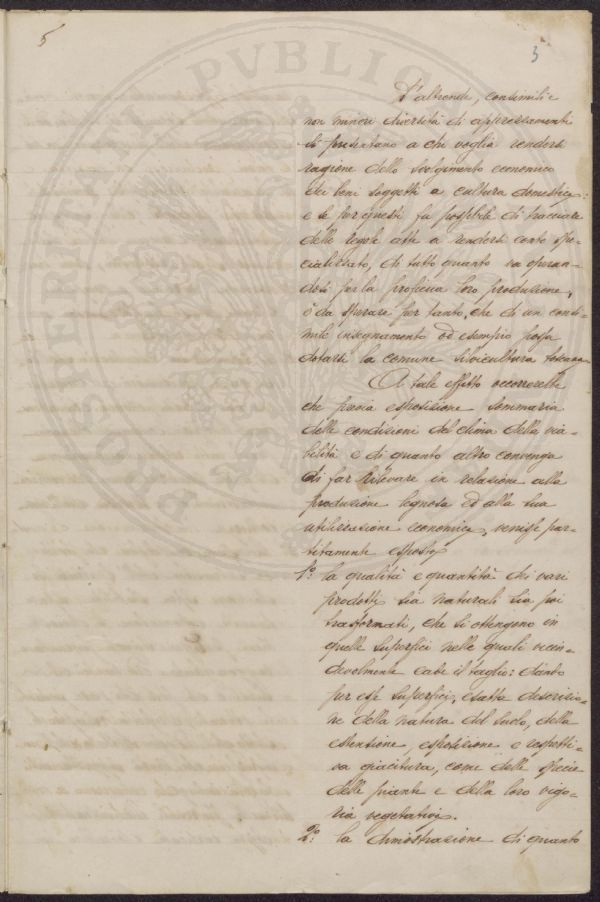 5
3
PROSPERITATI PVBLICAE
D'altronde, consimili e
non minori diversità di apprezzamenti
si presentano a chi voglia rendersi
ragione dello svolgimento economico
dei beni soggetti a cultura domestica:
e se per questi fu possibile di tracciare
delle regole atte a rendersi conto spe-
cializzato, di tutto quanto va operan-
dosi per la proficua loro produzione,
è da sperare per tanto, che di un consi-
mile insegnamento ed esempio possa
dotarsi la comune silvicultura toscana.
A tale effetto occorrerebbe
che previa esposizione sommaria
delle condizioni del clima della via-
bilità e di quanto altro convenga
di far rilevare in relazione alla
produzione legnosa ed alla sua
utilizzazione economica, venisse par-
titamente esposta
1.º la qualità e quantità dei vari
prodotti sia naturali sia poi
trasformati, che si ottengono in
quelle superfici nelle quali vicen-
devolmente cade il taglio: dando
per esse superfici, esatta descrizio-
ne della natura del suolo, della
estensione, esposizione e rispetti-
va giacitura, come delle specie
delle piante e della loro vigo-
ria vegetativa.
2.º la dimostrazione di quanto